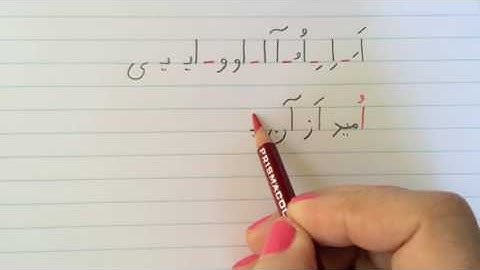 اَ ـَ اِ ـِ اُ ـُ آ ا او و ایـ یـ ی
اُمید اَز آن
PRISMACOL